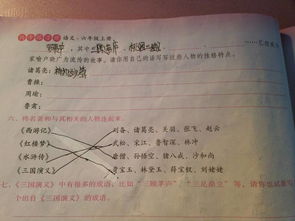 语文·六年级上册
，其中
家喻户晓广为流传的故事。请你用自己的话写写这些人物的性格特点。
诸葛亮：
曹操：
周瑜：
鲁肃：
六、将名著和与其相关的人物连起来。
《西游记》 刘备、诸葛亮、关羽、张飞、赵云
《红楼梦》 武松、宋江、鲁智深、林冲
《水浒传》 唐僧、孙悟空、猪八戒、沙和尚
《三国演义》 贾宝玉、林黛玉、薛宝钗、刘姥姥
七、《三国演义》中有很多的成语，比如“三顾茅庐”、“三足鼎立”等，请你也试着写
个出自《三国演义》的成语。